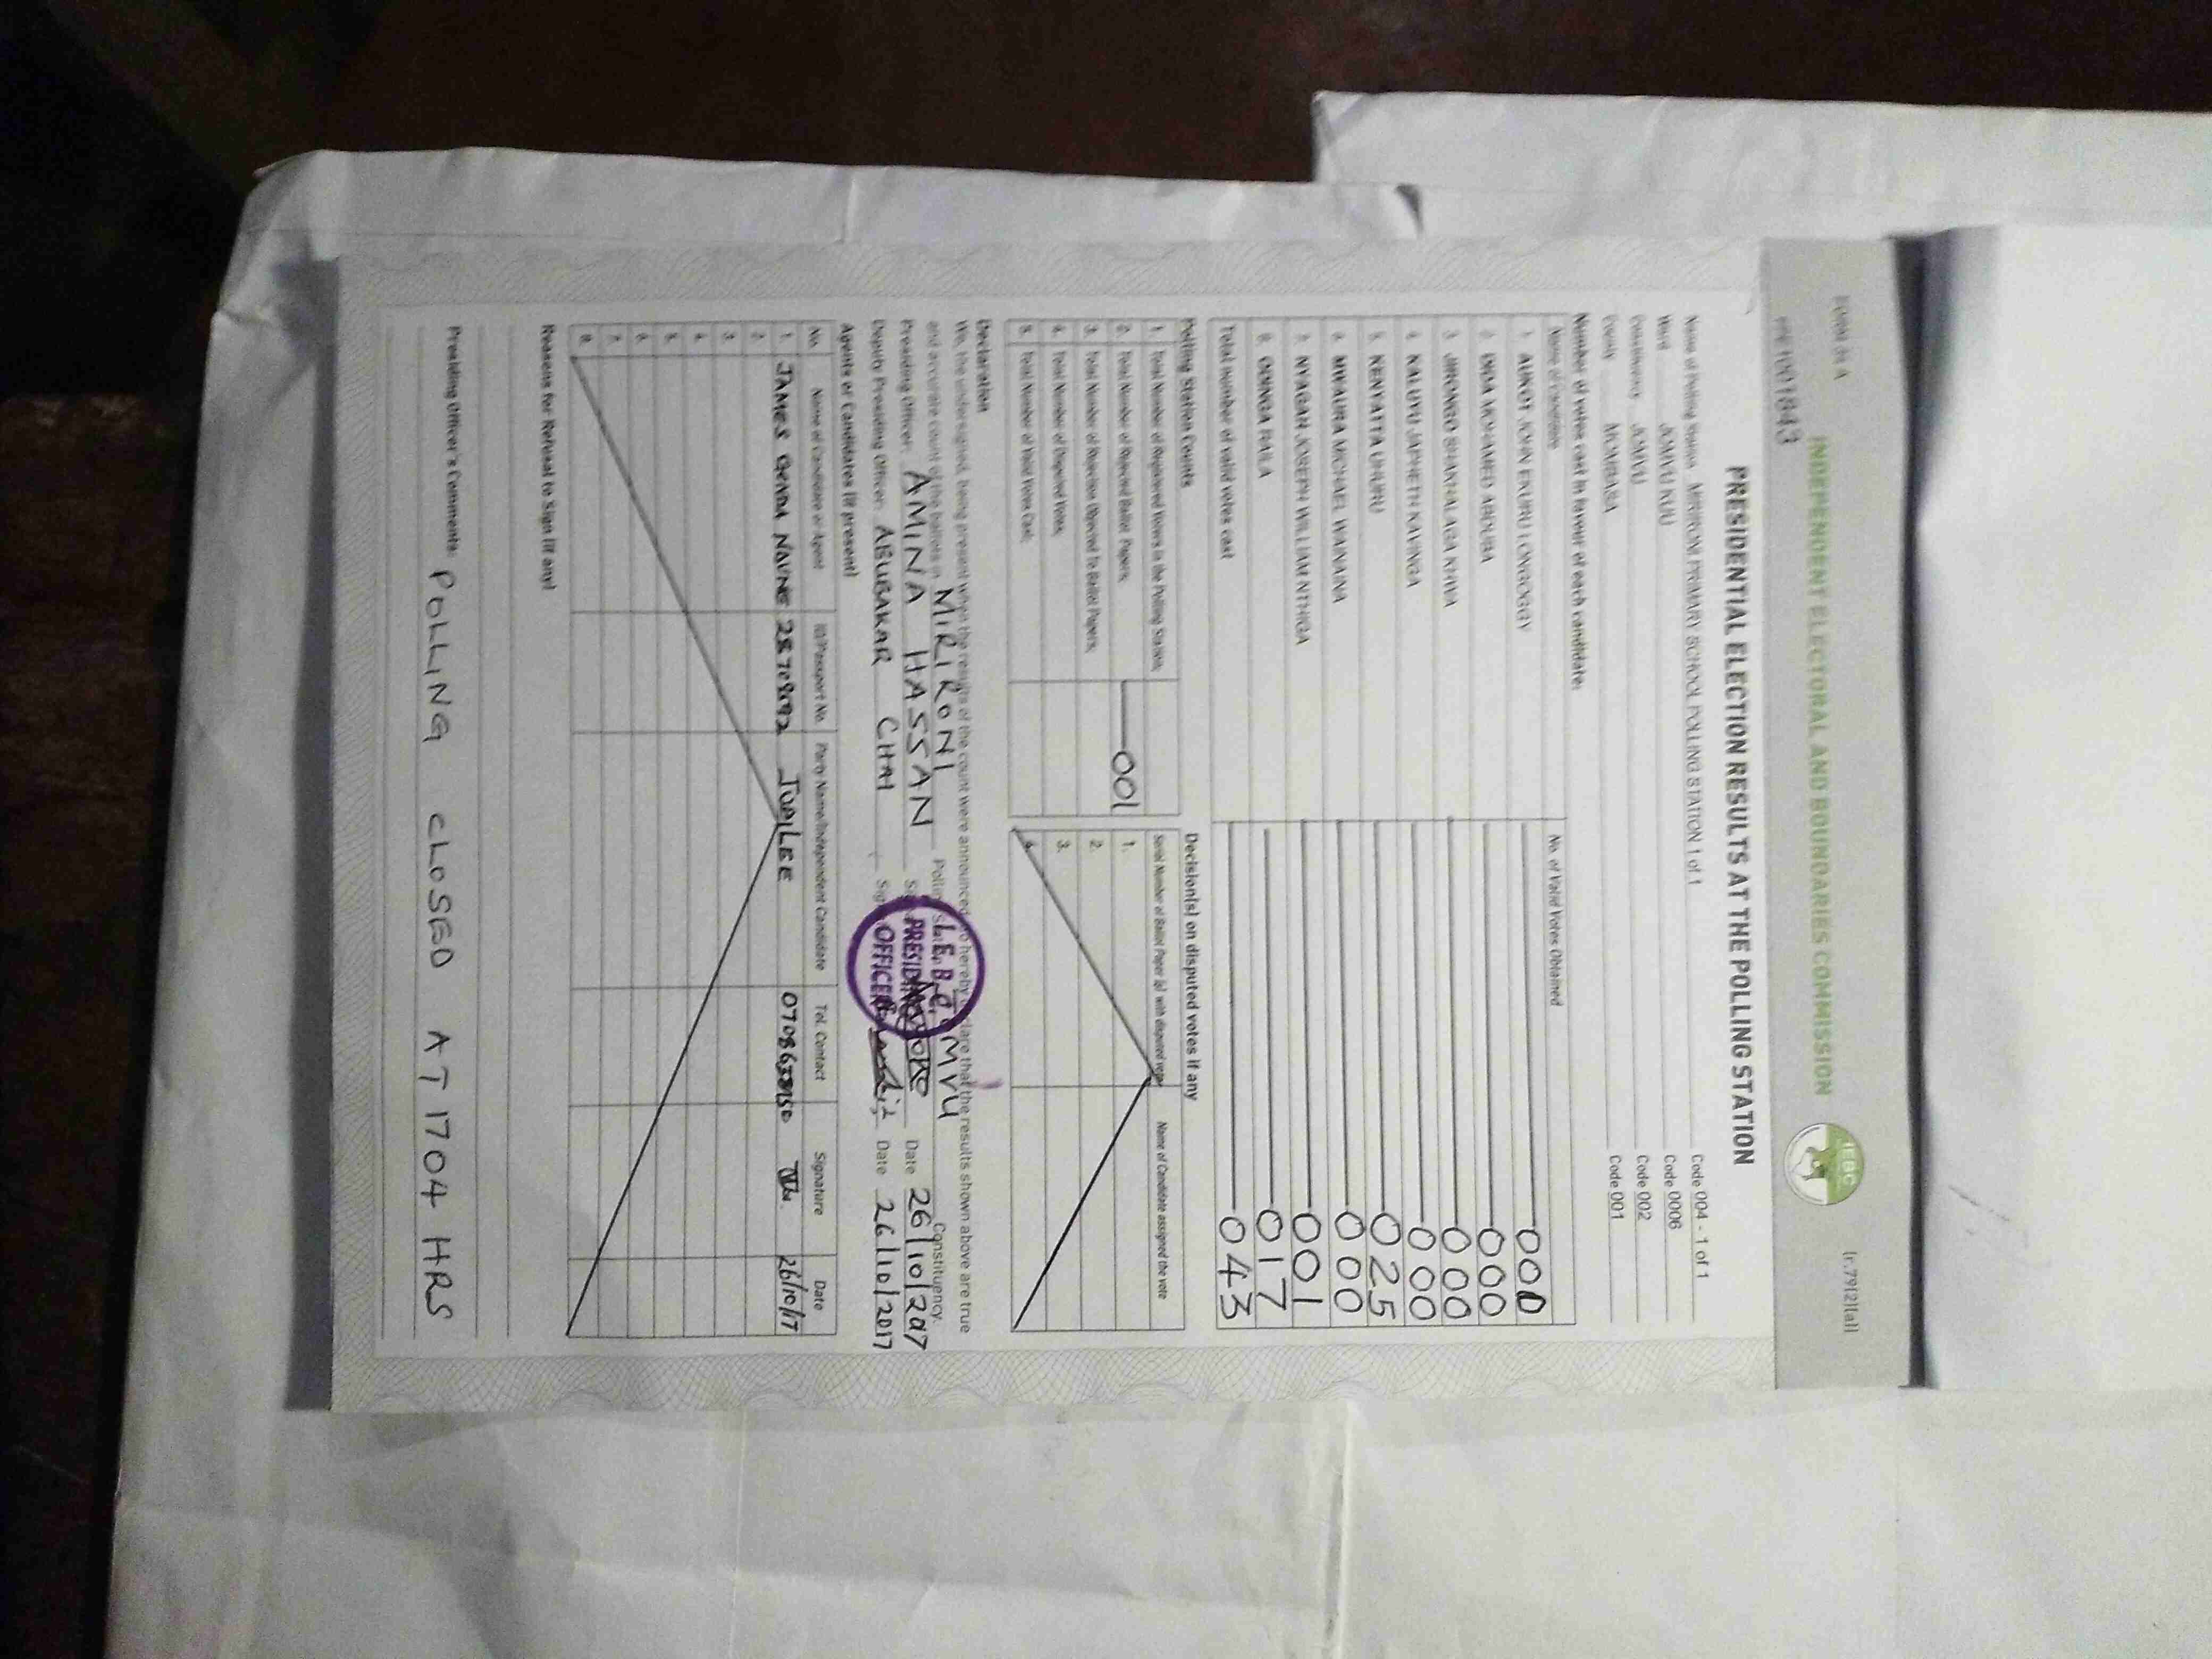 FORM 34 A (r.79(2)(a))
INDEPENDENT ELECTORAL AND BOUNDARIES COMMISSION
IEBC
1001843
PRESIDENTIAL ELECTION RESULTS AT THE POLLING STATION
Name of Polling Station MIRIRONI PRIMARY SCHOOL POLLING STATION 1 of 1 Code 004 - 1 of 1
Ward JOMVU KUU Code 0006
Constituency JOMVU Code 002
County MOMBASA Code 001
Number of votes cast in favour of each candidate:
Name of Candidate No. of Valid Votes Obtained
1. AUKOT JOHN EKURU LONGOGGY 000
2. DIDA MOHAMED ABDUBA 000
3. JIRONGO SHAKHALAGA KHWA 000
4. KALUYU JAPHETH KAVINGA 000
5. KENYATTA UHURU 025
6. MWAURA MICHAEL WAINAINA 000
7. NYAGAH JOSEPH WILLIAM NTHIGA 001
8. ODINGA RAILA 017
Total number of valid votes cast 043
Polling Station Counts Decision(s) on disputed votes if any
1. Total Number of Registered Voters in the Polling Station; Serial Number of Ballot Paper (s) with disputed vote Name of Candidate assigned the vote
2. Total Number of Rejected Ballot Papers; 001 1.
3. Total Number of Rejection Objected To Ballot Papers; 2.
4. Total Number of Disputed Votes; 3.
5. Total Number of Valid Votes Cast; 4.
Declaration
We, the undersigned, being present when the results of the count were announced do hereby declare that the results shown above are true
and accurate count of the ballots in MIRIRONI Polling Station JOMVU Constituency.
Presiding Officer: AMINA HASSAN Date 26/10/2017
Deputy Presiding Officer: ABUBAKAR CHAI Sign Date 26/10/2017
I.E.B.C.
PRESIDING
OFFICER
Agents or Candidates (if present)
No. Name of Candidate or Agent ID/Passport No. Party Name/Independent Candidate Tel. Contact Signature Date
1. JAMES NDUNE JUBILEE 26/10/17
2.
3.
4.
5.
6.
7.
8.
Reasons for Refusal to Sign (if any)
Presiding Officer's Comments: POLLING CLOSED AT 1704 HRS